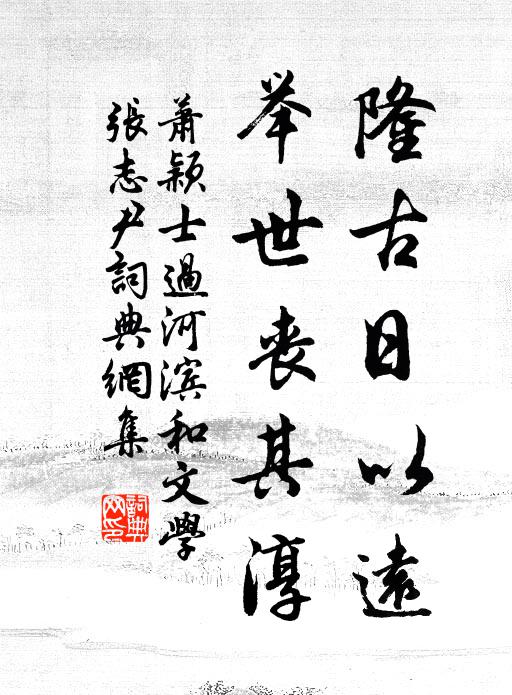 隆古日以遠
举世丧其淳
萧颖士過河滨和文學
張志尹詞典網集
詞典
网印